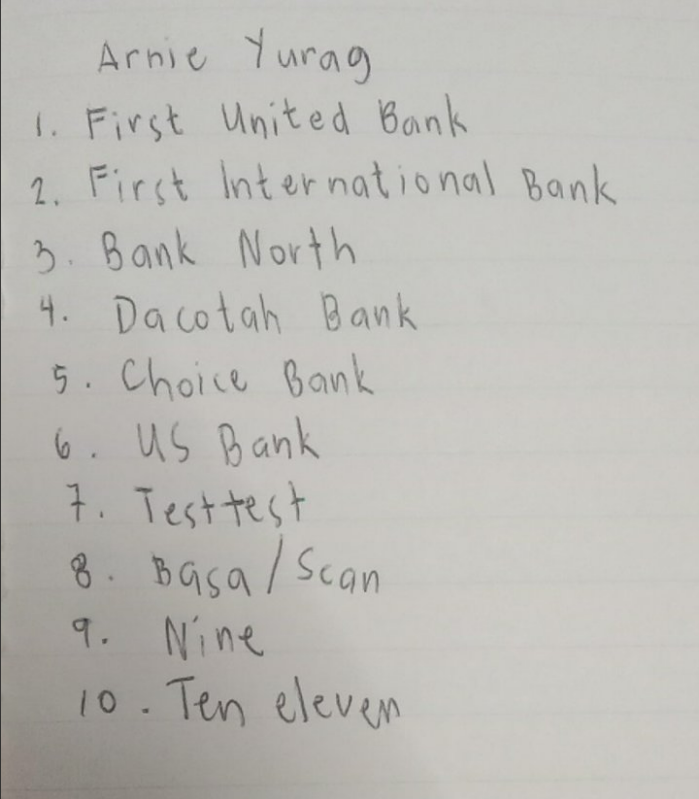 Arnie Yurag
1. First United Bank
2. First International Bank
3. Bank North
4. Dacotah Bank
5. Choice Bank
6. US Bank
7. Testtest
8. Basa/Scan
9. Nine
10. Ten eleven